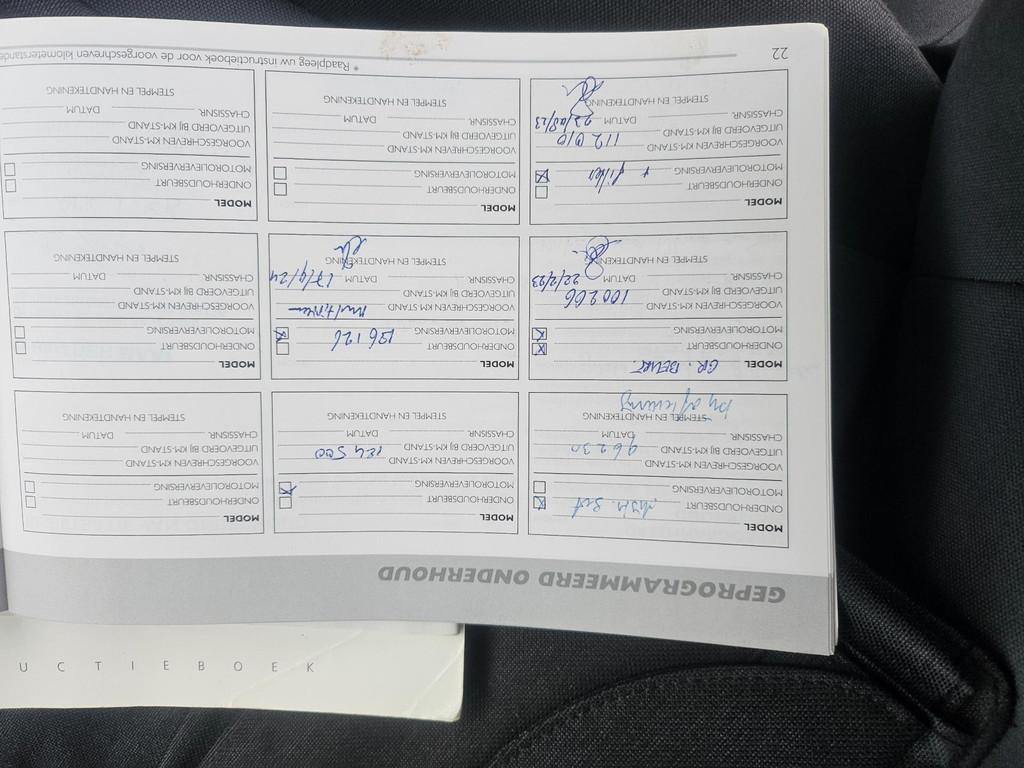 GEPROGRAMMEERD ONDERHOUD
MODEL
ONDERHOUDSBEURT
MOTOROLIEVERVERSING
VOORGESCHREVEN KM-STAND
UITGEVOERD BIJ KM-STAND 96230
CHASSISNR. DATUM
STEMPEL EN HANDTEKENING
bij aflevering
MODEL
ONDERHOUDSBEURT
MOTOROLIEVERVERSING
VOORGESCHREVEN KM-STAND
UITGEVOERD BIJ KM-STAND 124 500
CHASSISNR. DATUM
STEMPEL EN HANDTEKENING
MODEL
ONDERHOUDSBEURT
MOTOROLIEVERVERSING
VOORGESCHREVEN KM-STAND
UITGEVOERD BIJ KM-STAND
CHASSISNR. DATUM
STEMPEL EN HANDTEKENING
MODEL GR. BEURT
ONDERHOUDSBEURT
MOTOROLIEVERVERSING
VOORGESCHREVEN KM-STAND 100266
UITGEVOERD BIJ KM-STAND
CHASSISNR. DATUM 22/2/23
STEMPEL EN HANDTEKENING
MODEL
ONDERHOUDSBEURT
MOTOROLIEVERVERSING 136126
VOORGESCHREVEN KM-STAND
UITGEVOERD BIJ KM-STAND
CHASSISNR. DATUM
STEMPEL EN HANDTEKENING
MODEL
ONDERHOUDSBEURT
MOTOROLIEVERVERSING
VOORGESCHREVEN KM-STAND
UITGEVOERD BIJ KM-STAND
CHASSISNR. DATUM
STEMPEL EN HANDTEKENING
MODEL
ONDERHOUDSBEURT
MOTOROLIEVERVERSING + filter
VOORGESCHREVEN KM-STAND
UITGEVOERD BIJ KM-STAND 112 010
CHASSISNR. DATUM 22/08/23
STEMPEL EN HANDTEKENING
MODEL
ONDERHOUDSBEURT
MOTOROLIEVERVERSING
VOORGESCHREVEN KM-STAND
UITGEVOERD BIJ KM-STAND
CHASSISNR. DATUM
STEMPEL EN HANDTEKENING
MODEL
ONDERHOUDSBEURT
MOTOROLIEVERVERSING
VOORGESCHREVEN KM-STAND
UITGEVOERD BIJ KM-STAND
CHASSISNR. DATUM
STEMPEL EN HANDTEKENING
22
* Raadpleeg uw instructieboek voor de voorgeschreven kilometerstande
UCTIEBOEK